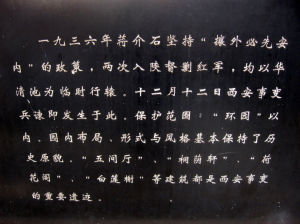 一九三六年蒋介石坚持“攘外必先安
内”的政策，两次入陕督剿红军，均以华
清池为临时行辕。十二月十二日西安事变
兵谏即发生于此。保护范围：“环园”以
内。园内布局、形式与风格基本保持了历
史原貌。“五间厅”、“桐荫轩”、“荷
花阁”、“白莲榭”等建筑都是西安事变
的重要遗迹。